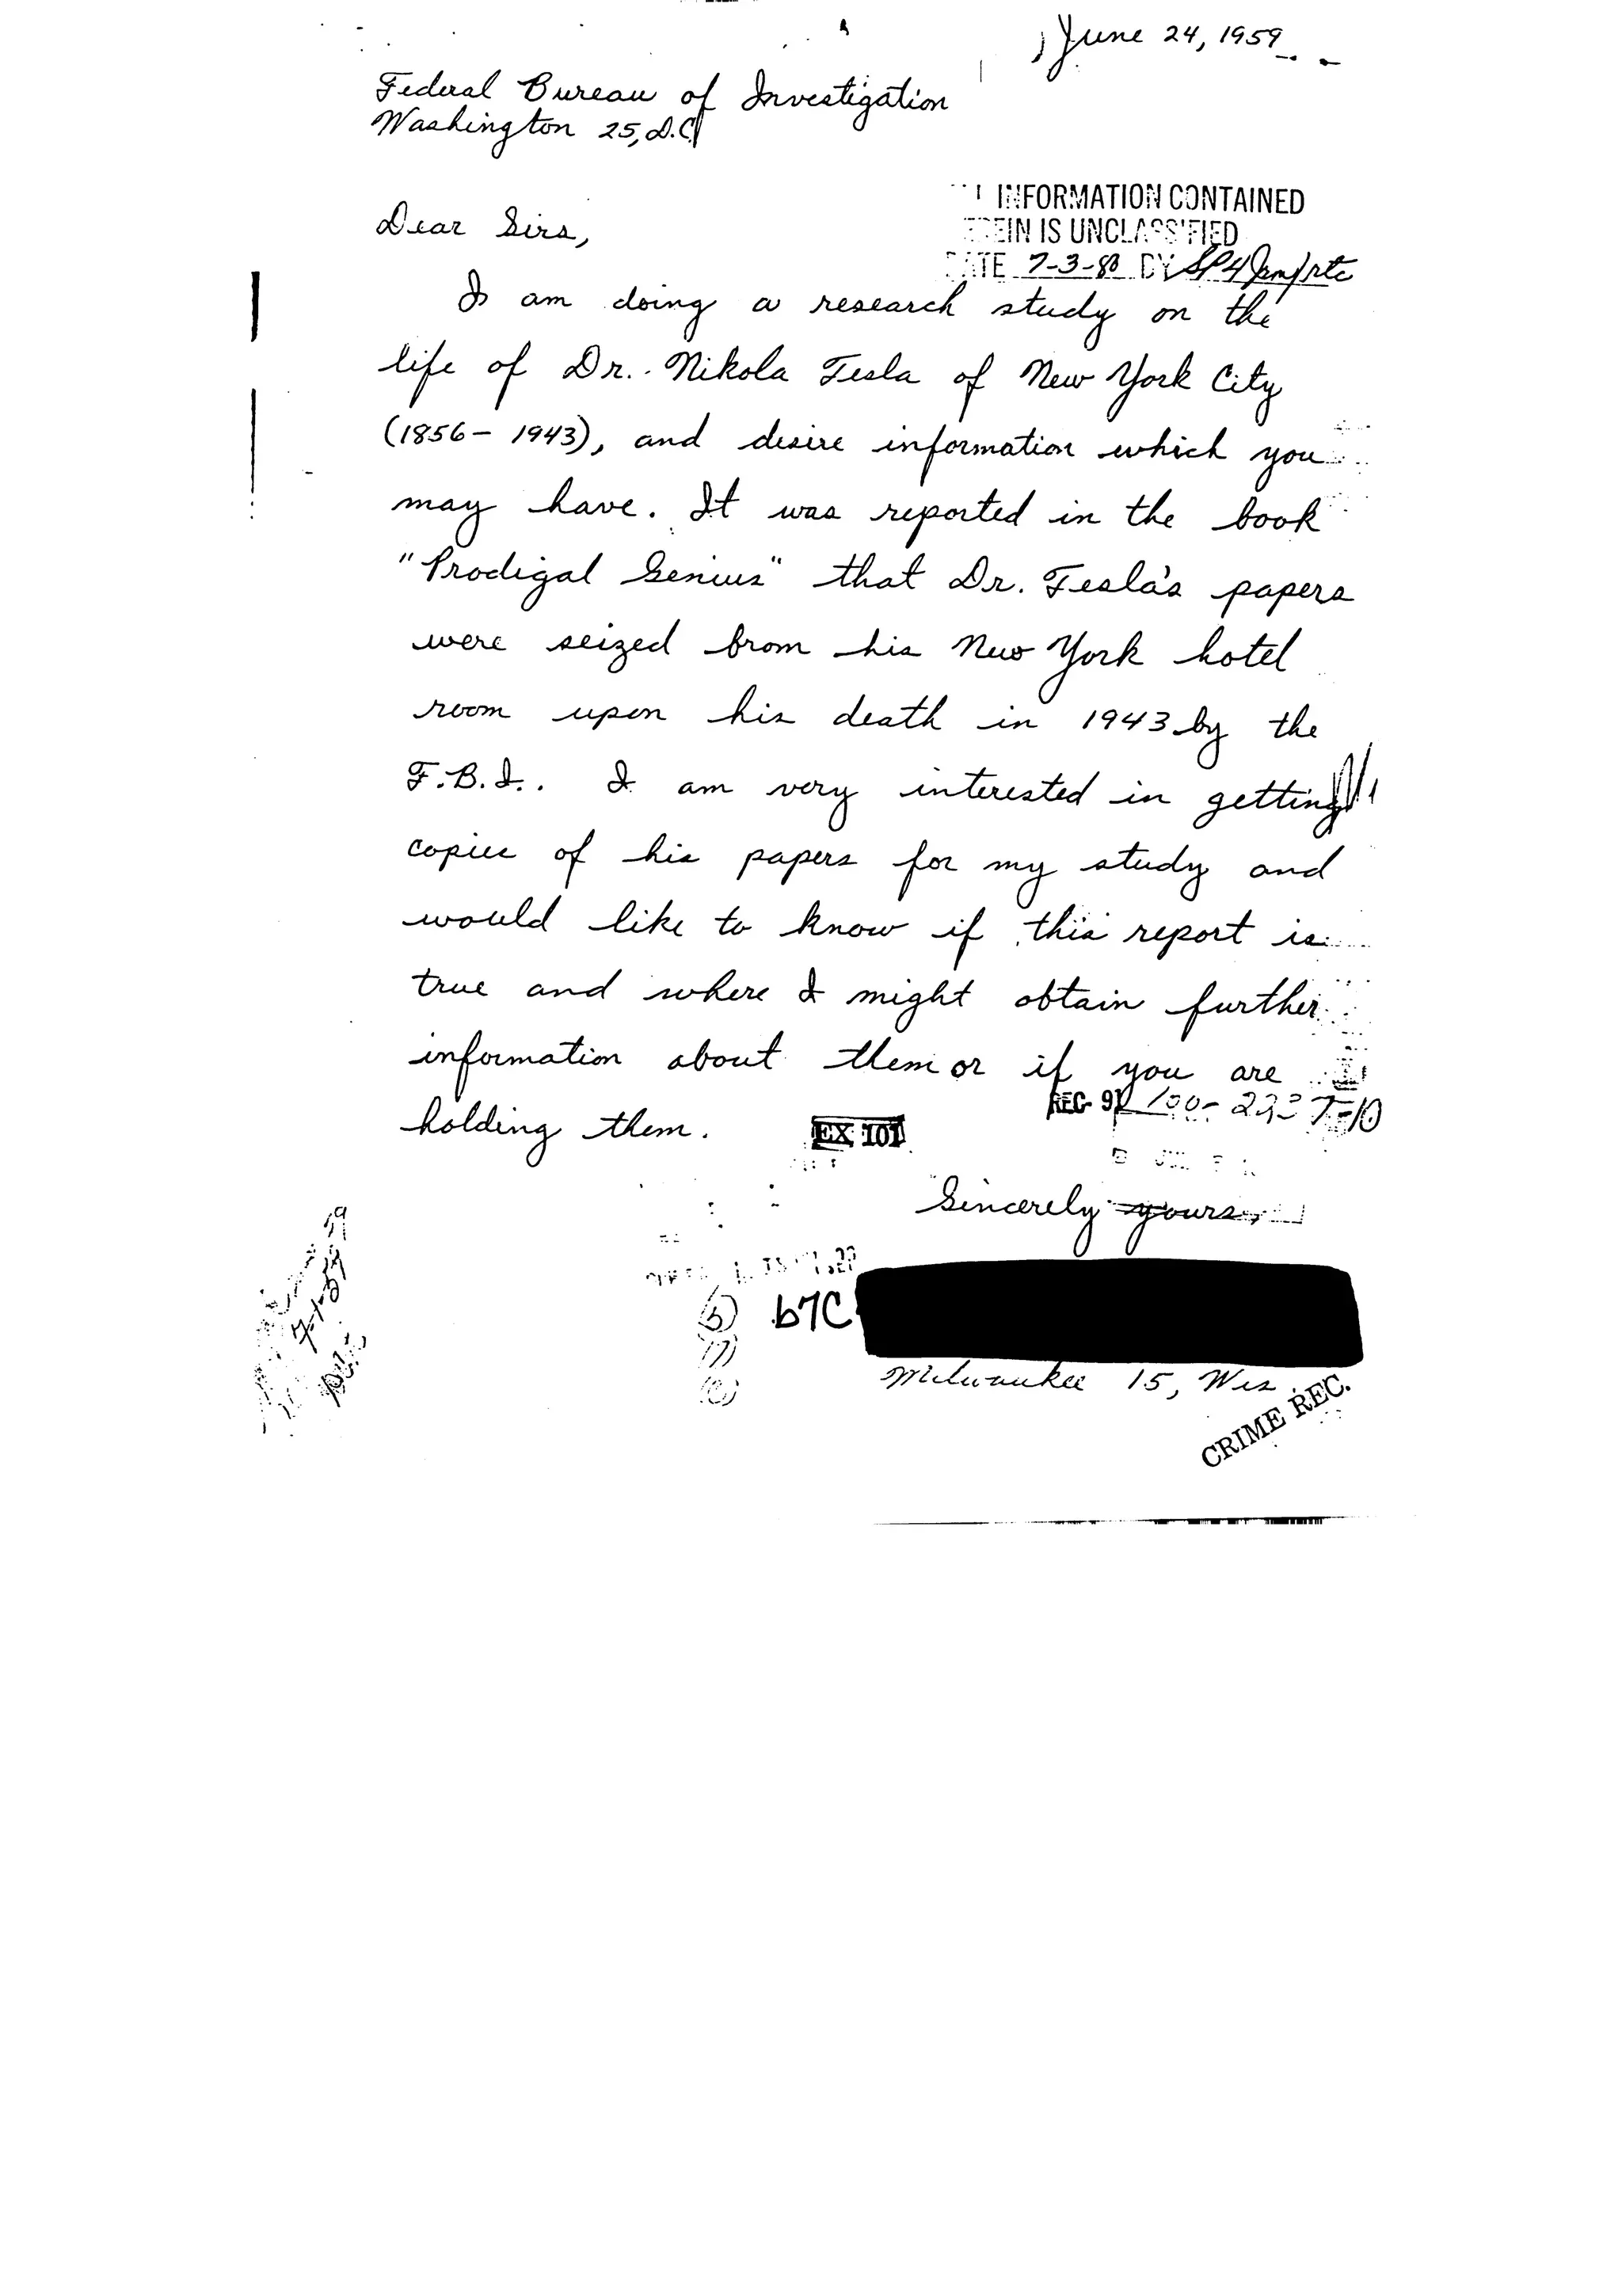 June 24, 1959
Federal Bureau of Investigation
Washington 25, D.C.
INFORMATION CONTAINED
IS UNCLASSIFIED
DATE 7-3-80 BY SP4
Dear Sirs,
I am doing a research study on the
life of Dr. Nikola Tesla of New York City
(1856 - 1943), and desire information which you
may have. It was reported in the book
"Prodigal Genius" that Dr. Tesla's papers
were seized from his New York hotel
room upon his death in 1943 by the
F.B.I.. I am very interested in getting
copies of his papers for my study and
would like to know if this report is
true and where I might obtain further
information about them or if you are
holding them.
REC- 91
EX 101
Sincerely yours,
b7C
Milwaukee 15, Wis
CRIME REC.